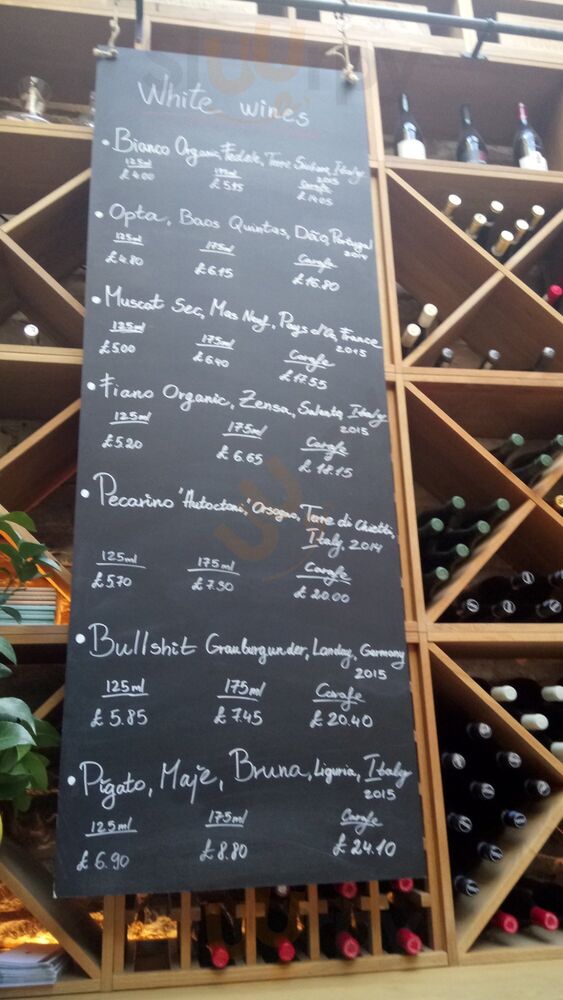 White wines
• Bianco Organic, Fedele, Terre Siciliane, Italy
2015
125ml 175ml Carafe
£ 4.00 £ 5.15 £ 14.05
• Opta, Boas Quintas, Dão, Portugal
2014
125ml 175ml Carafe
£4.80 £ 6.15 £ 16.80
• Muscat Sec, Mas Neuf, Pays d'Oc, France
2015
125ml 175ml Carafe
£5.00 £ 6.40 £ 17.55
• Fiano Organic, Zensa, Salento, Italy
2015
125ml 175ml Carafe
£5.20 £ 6.65 £ 18.15
• Pecarino 'Autoctoni,' Orsogna, Terre di Chietti,
Italy, 2014
125ml 175ml Carafe
£5.70 £7.30 £ 20.00
• Bullshit Grauburgunder, Landau, Germany
2015
125ml 175ml Carafe
£ 5.85 £ 7.45 £ 20.40
• Pigato, Majé, Bruna, Liguria, Italy
2015
125ml 175ml Carafe
£ 6.90 £ 8.80 £ 24.10